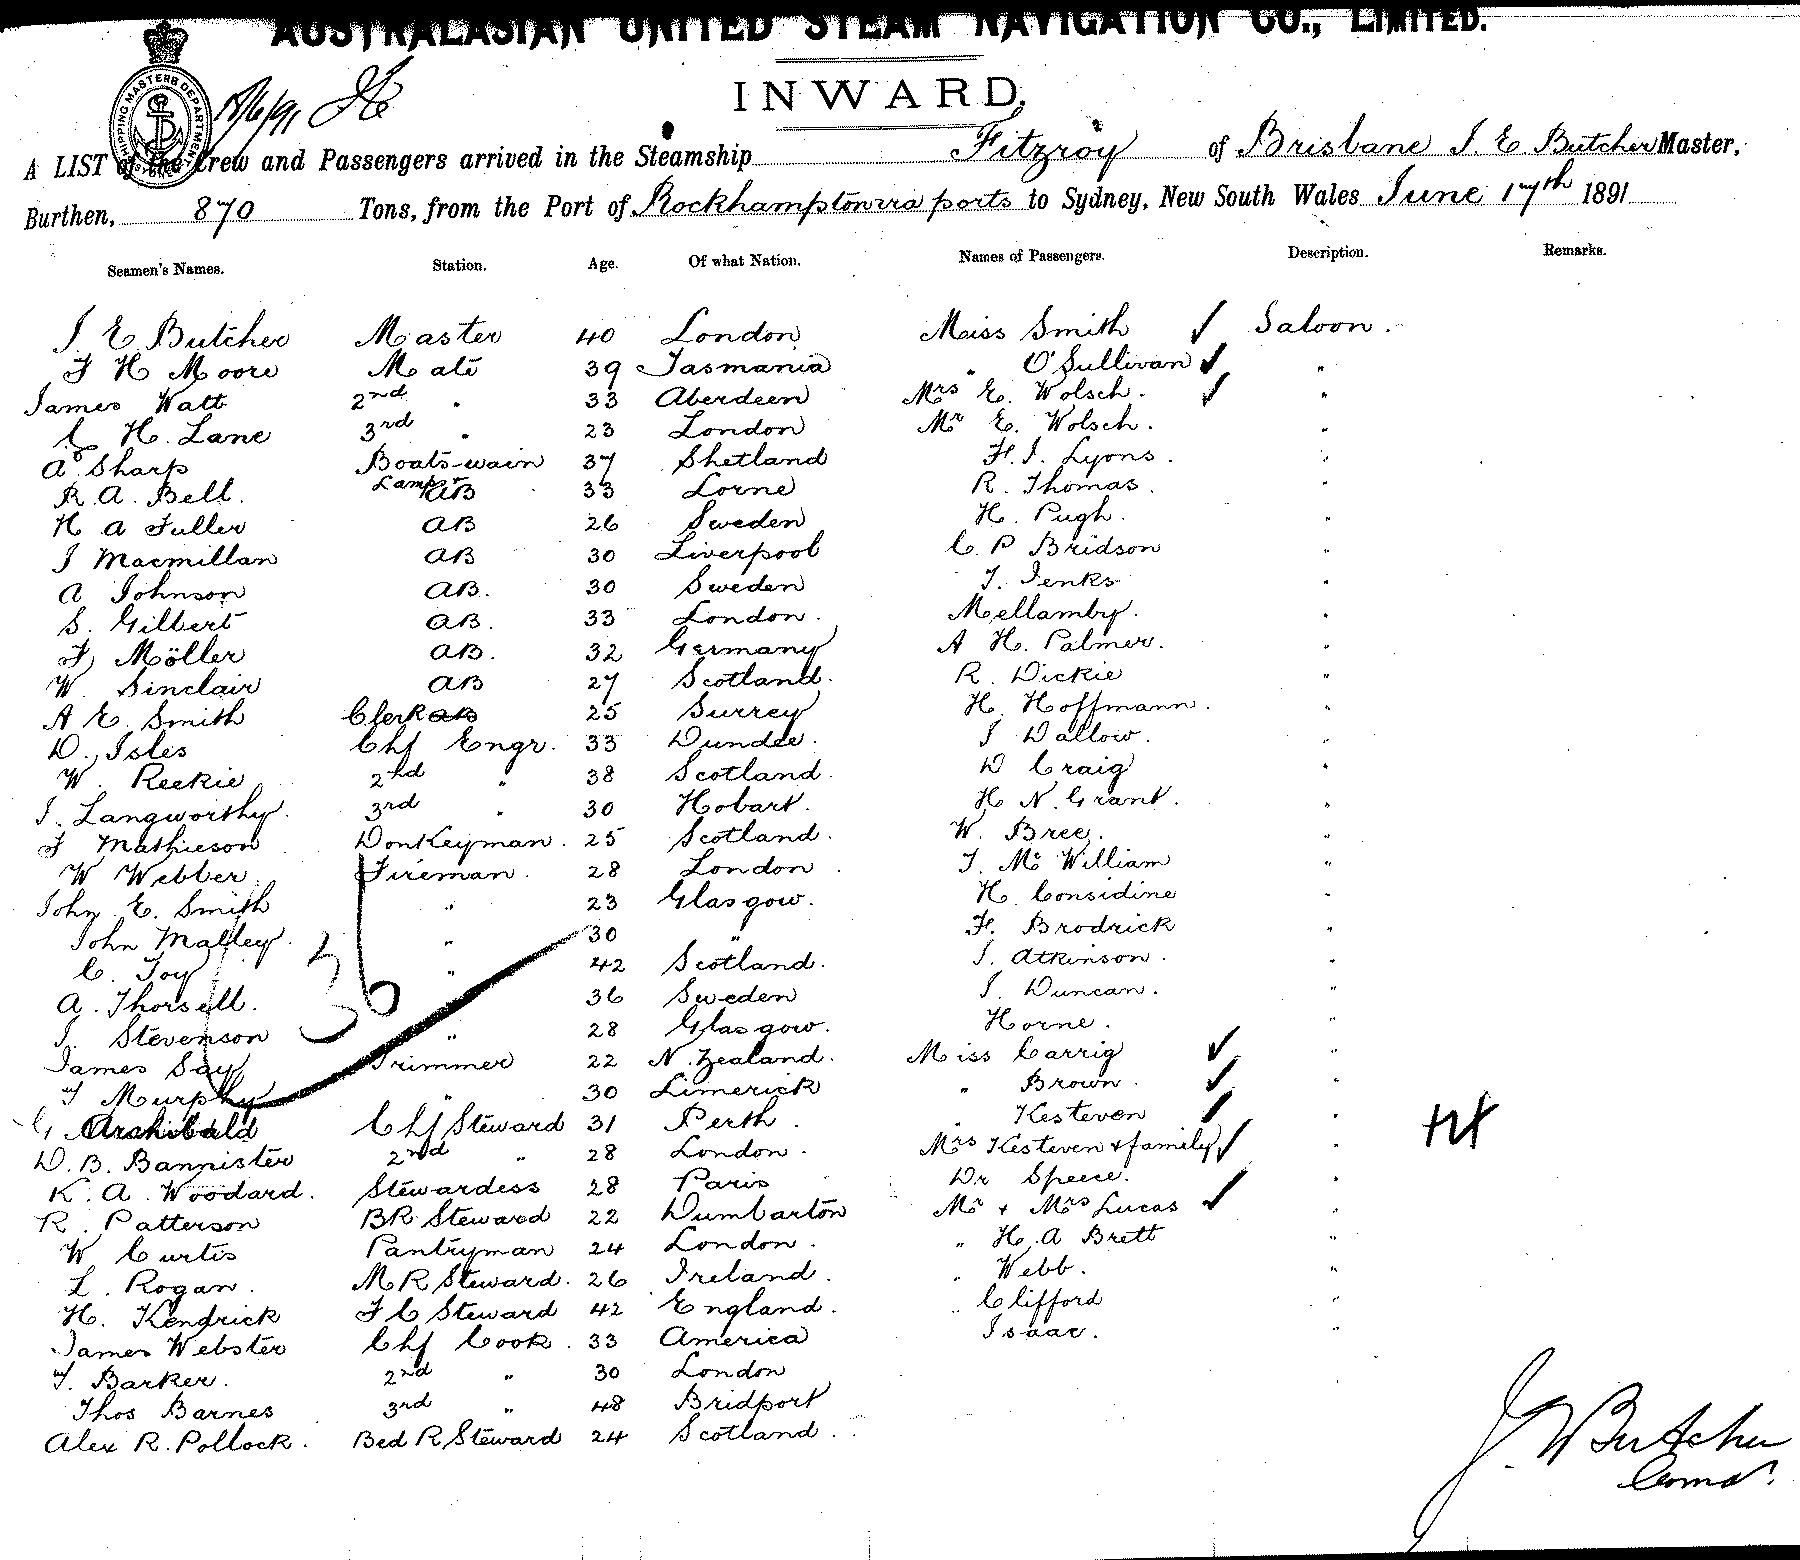 AUSTRALASIAN UNITED STEAM NAVIGATION CO., LIMITED.
INWARD.
SHIPPING MASTERS DEPARTMENT
A LIST of the Crew and Passengers arrived in the Steamship Fitzroy of Brisbane J. E. Butcher Master,
Burthen, 870 Tons, from the Port of Rockhampton via ports to Sydney, New South Wales June 17th 1891
Seamen's Names. Station. Age. Of what Nation. Names of Passengers. Description. Remarks.
J. E Butcher Master 40 London Miss Smith ✓ Saloon.
F H Moore Mate 39 Tasmania " O'Sullivan ✓ "
James Watt 2nd " 33 Aberdeen Mrs E. Wolsch. ✓ "
C H. Lane 3rd " 23 London Mr E. Wolsch. "
A Sharp Boats-wain 37 Shetland F. J. Lyons. "
R. A. Bell. Lamps AB 33 Lorne R. Thomas. "
H A Fuller AB 26 Sweden H. Pugh. "
J Macmillan AB 30 Liverpool C. P Bridson "
A Johnson AB. 30 Sweden T. Jenks "
S. Gilbert AB. 33 London. Mellamby. "
F Möller AB. 32 Germany A H. Palmer. "
W. Sinclair AB 27 Scotland. R. Dickie "
A E. Smith Clerk AB 25 Surrey H. Hoffmann. "
D. Isles Chf Engr. 33 Dundee. J Dallow. "
W. Reekie 2nd " 38 Scotland. D Craig "
J. Langworthy. 3rd " 30 Hobart. H N. Grant. "
F Mathieson Donkeyman. 25 Scotland. W. Bree. "
W Webber. Fireman. 28 London T. Mc William "
John E. Smith " 23 Glasgow. H. Considine "
John Malley. " 30 " F. Brodrick "
C. Toy " 42 Scotland. J. Atkinson. "
A. Thorsell. 36 Sweden J. Duncan. "
J. Stevenson " 28 Glasgow. Horne. "
James Say Trimmer 22 N. Zealand. Miss Carrig ✓ "
T Murphy " 30 Limerick " Brown. ✓ "
G Archibald Chf Steward 31 Perth. " Kesteven ✓ "
D. B. Bannister 2nd " 28 London. Mrs Kesteven & family ✓ "
K. A. Woodard. Stewardess 28 Paris Dr Speece. "
R. Patterson BR Steward 22 Dumbarton Mr & Mrs Lucas ✓ "
W Curtis Pantryman 24 London. " H. A Brett "
L. Rogan. M R Steward. 26 Ireland. " Webb. "
H. Kendrick F C Steward 42 England. " Clifford "
James Webster Chf Cook. 33 America Isaac. "
T. Barker. 2nd " 30 London
Thos Barnes 3rd " 48 Bridport
Alex R. Pollock. Bed R Steward 24 Scotland.
36
J. W Butcher
Comdr.